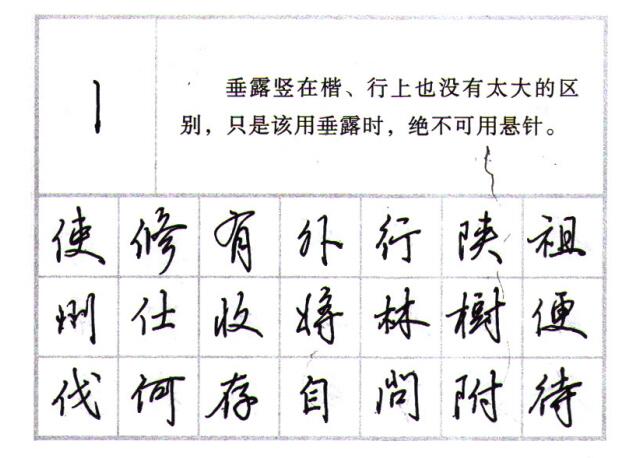 垂露竖在楷、行上也没有太大的区
别，只是该用垂露时，绝不可用悬针。
使修有外行陕祖
仕收将林树便
伐何存自问附待